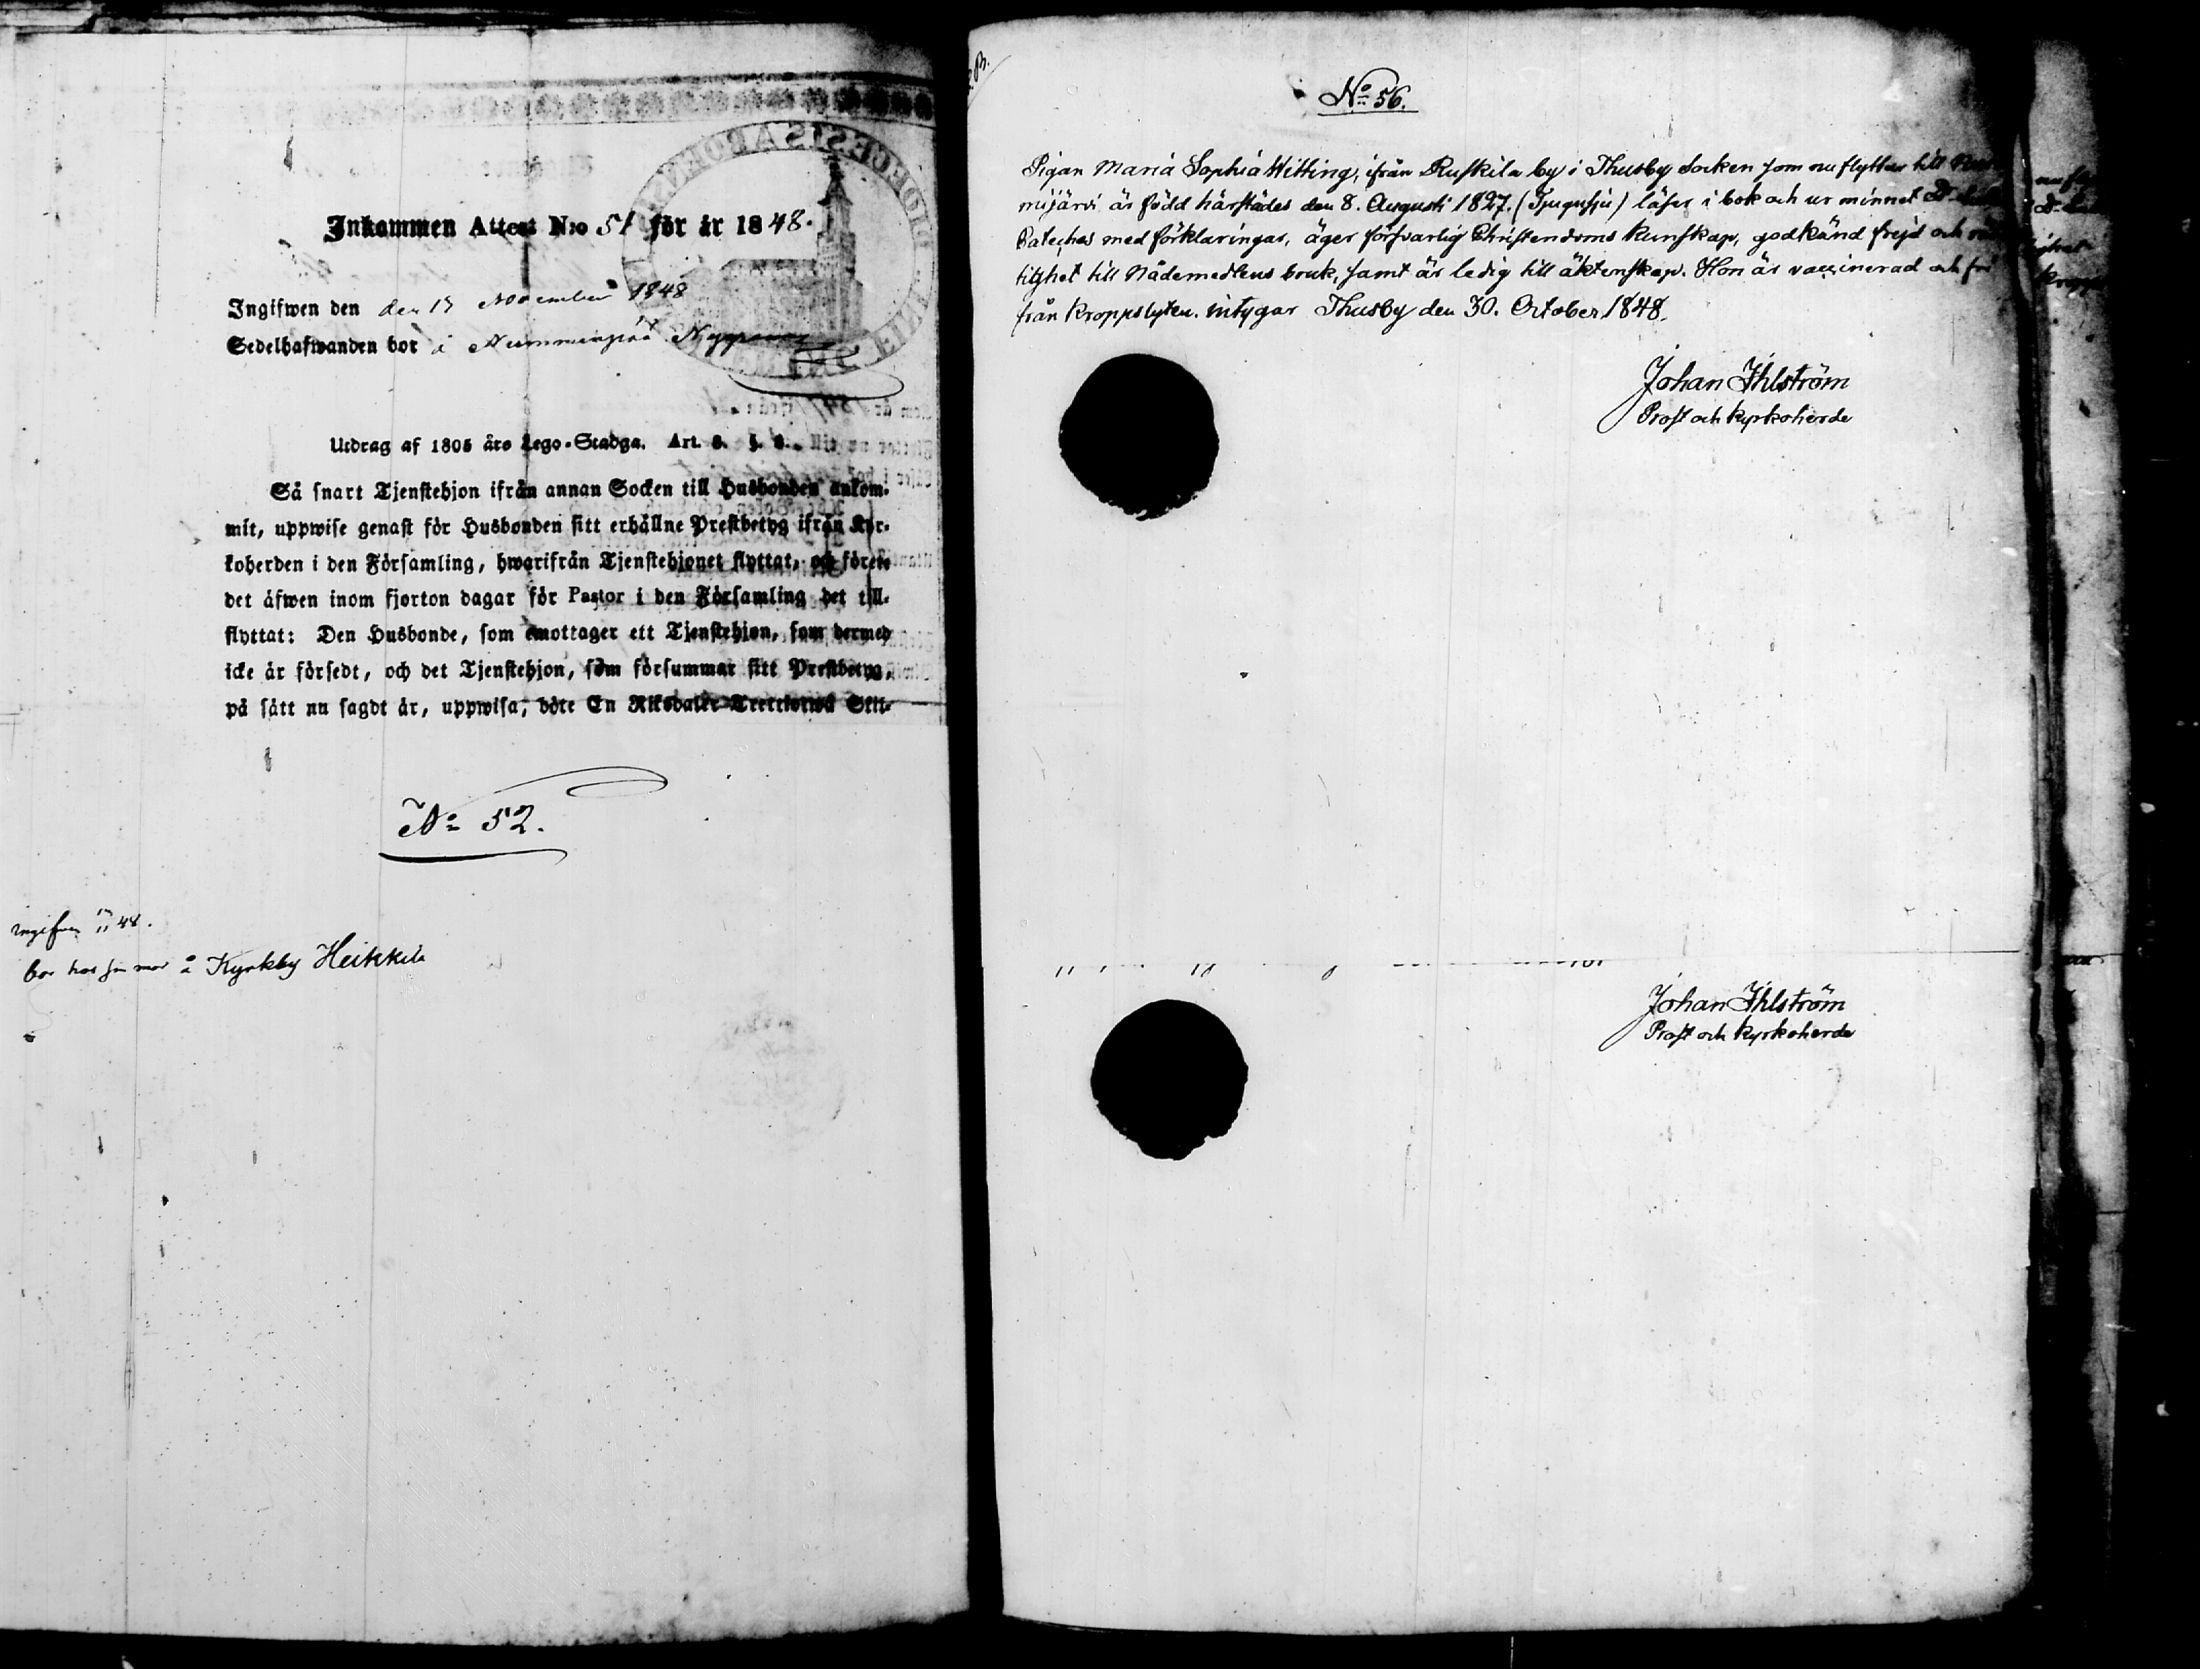 Inkommen Attest N:o 51 för år 1848.
Ingifwen den den 17 November 1848
Sedelhafwanden bor å Nummenpää
Utdrag af 1805 års Lego-Stadga. Art. 8. §. 8.
Så snart Tjenstehjon ifrån annan Socken till Husbonden ankom-
mit, uppwise genast för Husbonden sitt erhållne Prestbetyg ifrån Kyr-
koherden i den Församling, hwarifrån Tjenstehjonet flyttat, och förete
det äfwen inom fjorton dagar för Pastor i den Församling det till-
flyttat: Den Husbonde, som emottager ett Tjenstehjon, som dermed
icke är försedt, och det Tjenstehjon, som försummar sitt Prestbetyg,
på sätt nu sagdt är, uppwisa, böte En Riksdaler Trettiotwå Skil-
No 52.
ingifven 17/11 48.
bor hos sin mor å Kyrkby Heikkilä
No 56.
Pigan Maria Sophia Witting, ifrån Ruskila by i Thusby Socken som nu flyttar till Nur-
mijärvi är född härstädes den 8. Augusti 1827. (Tjugusju) läser i bok och ur minnet Dr
Cateches med förklaringar, äger försvarlig Christendoms kunskap, godkänd frejd och
tighet till Nådemedlens bruk, samt är ledig till äktenskap. Hon är vaccinerad och fri
från kroppslyten. intygar Thusby den 30. October 1848.
Johan Ihlström
Prost och kyrkoherde
Johan Ihlström
Prost och kyrkoherde